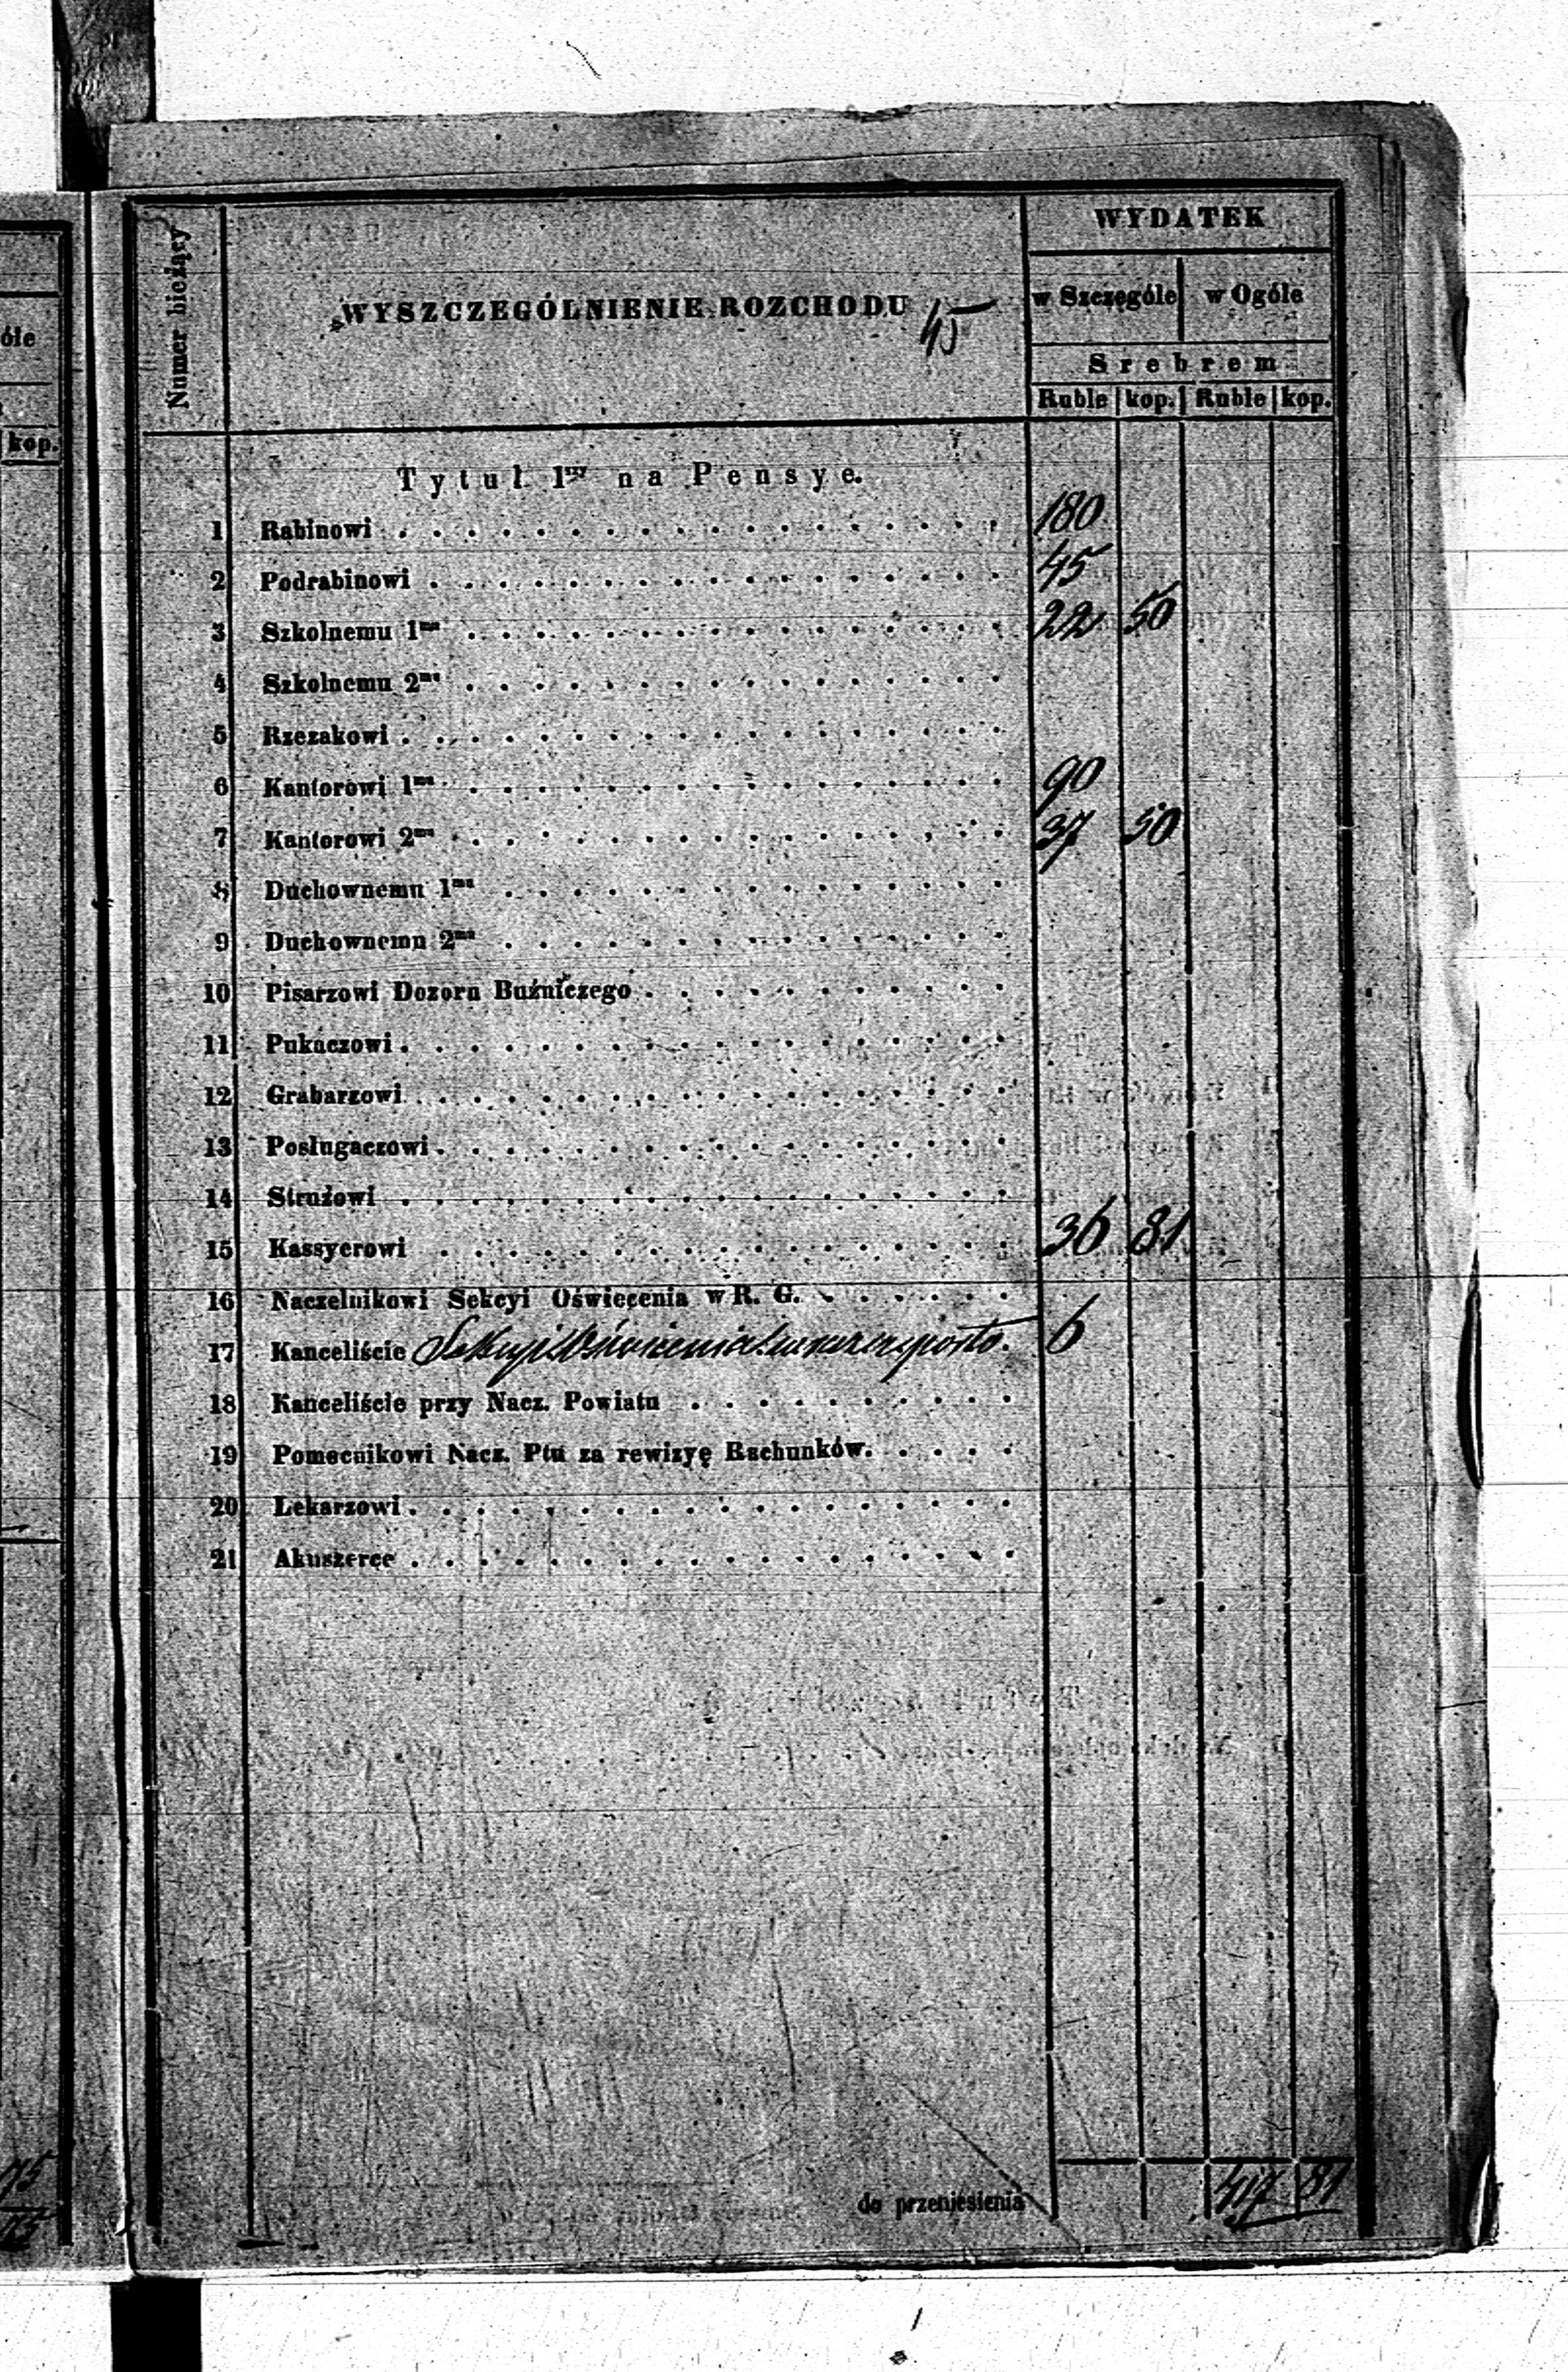 Numer bieżący
WYSZCZEGÓLNIENIE ROZCHODU
45
WYDATEK
w Szczególe w Ogóle
Srebrem
Ruble kop. Ruble kop.
Tytuł 1szy na Pensye.
1 Rabinowi 180
2 Podrabinowi 45
3 Szkolnemu 1mu 22 50
4 Szkolnemu 2mu
5 Rzezakowi
6 Kantorowi 1mu 90
7 Kantorowi 2mu 37 50
8 Duchownemu 1mu
9 Duchownemu 2mu
10 Pisarzowi Dozoru Bużniczego
11 Pukaczowi
12 Grabarzowi
13 Posługaczowi
14 Strużowi
15 Kassyerowi 36 81
16 Naczelnikowi Sekcyi Oświecenia w R. G.
17 Kanceliście Sekcyi Oświecenia 6
18 Kanceliście przy Nacz. Powiatu
19 Pomocnikowi Nacz. Ptu za rewizyę Rachunków.
20 Lekarzowi
21 Akuszerce
do przeniesienia 417 81
óle
kop.
75
75